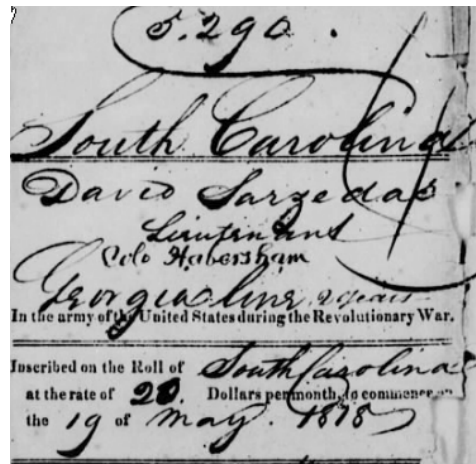 5.290.
South Carolina
David Sarzedas
Lieutenant
Colo Habersham
Georgia line 2 years
In the army of the United States during the Revolutionary War.
Inscribed on the Roll of South Carolina
at the rate of 20 Dollars per month, to commence on
the 19 of May 1818